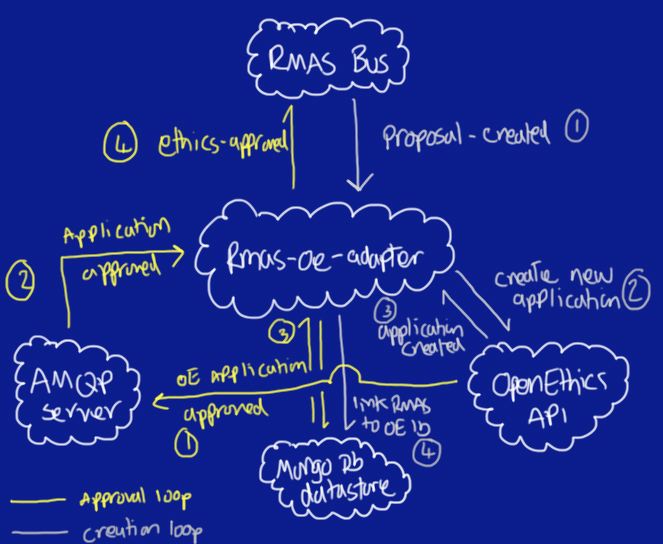 RMAS Bus
④ ethics-approved
Proposal-created ①
Application
approved
②
Rmas-oe-adapter
create new
application ②
③
application
created
③
OE Application
approved
①
AMQP
server
OpenEthics
API
link RMAS
to OE ID
④
Mongo Db
datastore
Approval loop
Creation loop